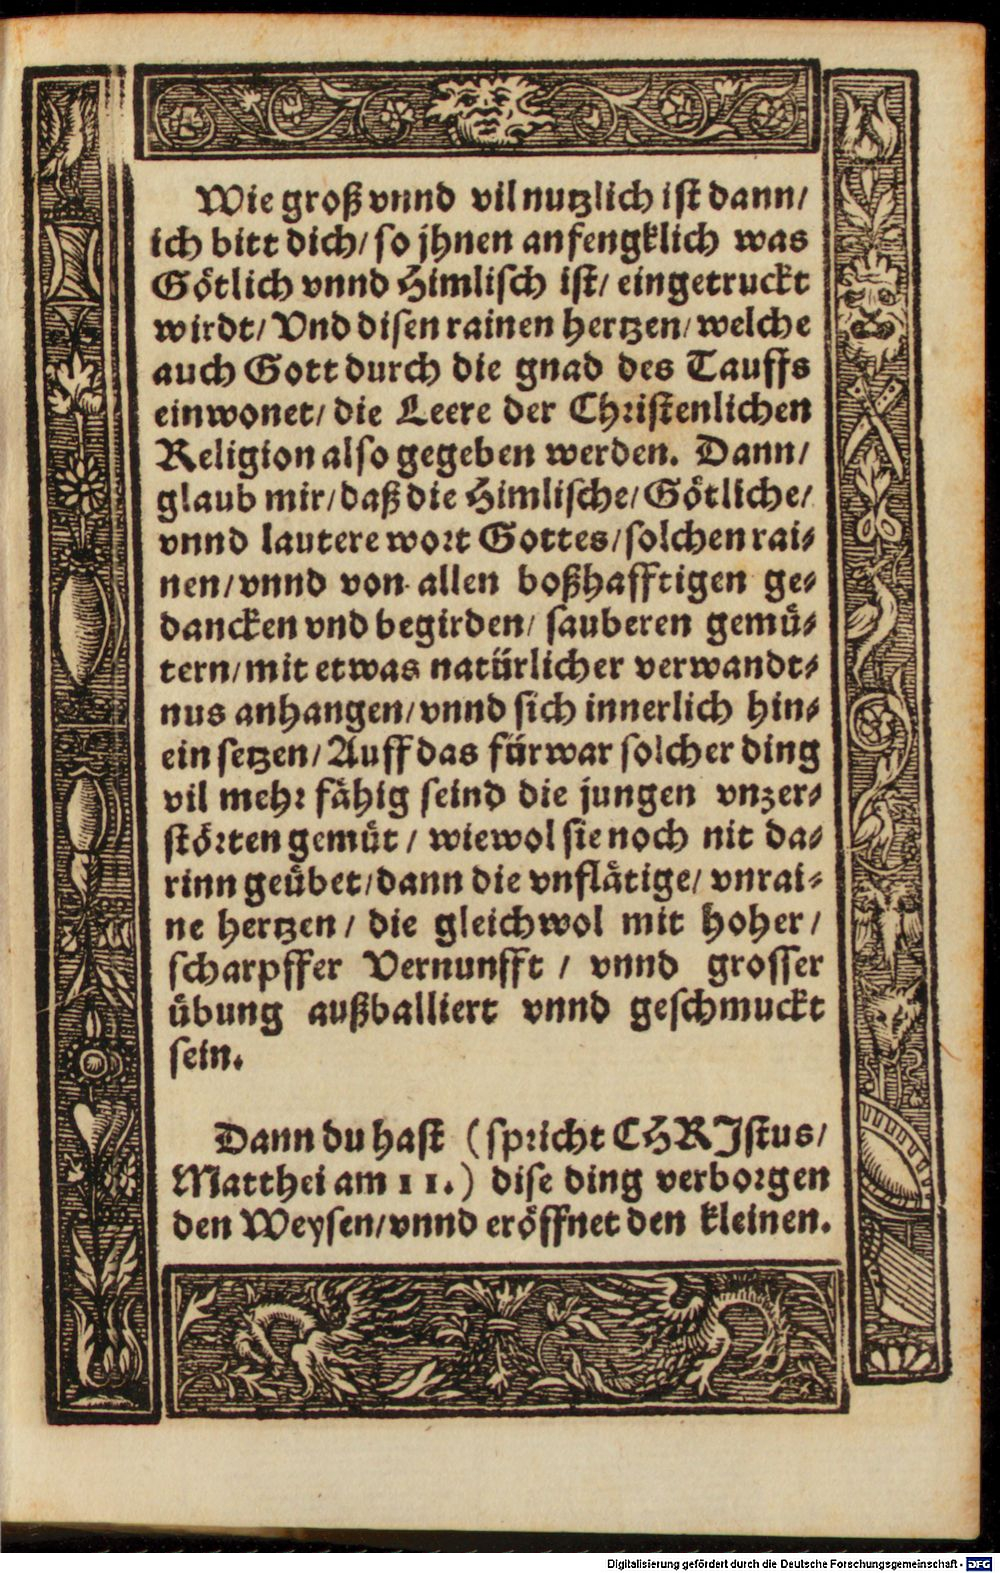 Wie groß vnnd vil nutzlich ist dann/
ich bitt dich/ so jhnen anfengklich was
Götlich vnnd Himlisch ist/ eingetruckt
wirdt/ Vnd disen rainen hertzen/ welche
auch Gott durch die gnad des Tauffs
einwonet/ die Leere der Christenlichen
Religion also gegeben werden. Dann/
glaub mir/ daß die Himlische/ Götliche/
vnnd lautere wort Gottes/ solchen rai⸗
nen/ vnnd von allen boßhafftigen ge⸗
dancken vnd begirden/ sauberen gemuͤ⸗
tern/ mit etwas natürlicher verwandt⸗
nus anhangen/ vnnd sich innerlich hin⸗
ein setzen/ Auff das fürwar solcher ding
vil mehr fähig seind die jungen vnzer⸗
störten gemuͤt / wiewol sie noch nit da⸗
rinn geuͤbet/ dann die vnflätige/ vnrai⸗
ne hertzen / die gleichwol mit hoher /
scharpffer Vernunfft / vnnd grosser
uͤbung außballiert vnnd geschmuckt
sein.
Dann du hast (spricht CHRJstus/
Matthei am 11.) dise ding verborgen
den Weysen/ vnnd eröffnet den kleinen.
Digitalisierung gefördert durch die Deutsche Forschungsgemeinschaft - DFG